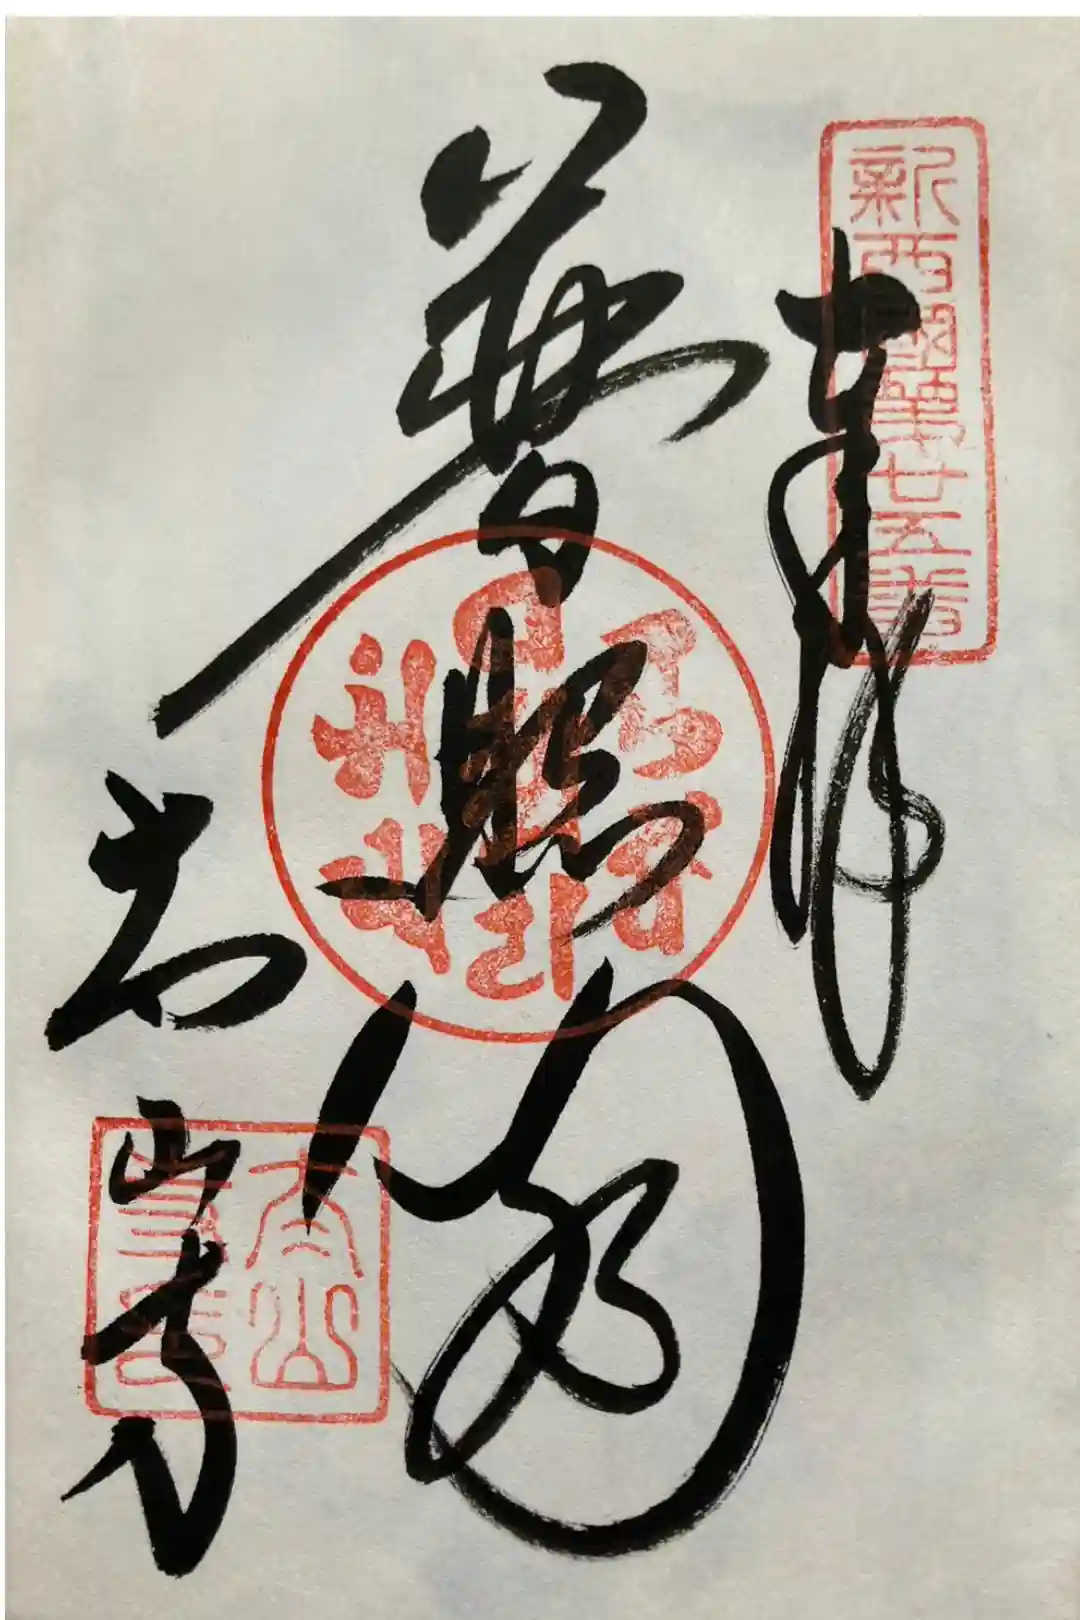 新西国第廿五番
奉拝
普照閣
太山寺
太山
寺印